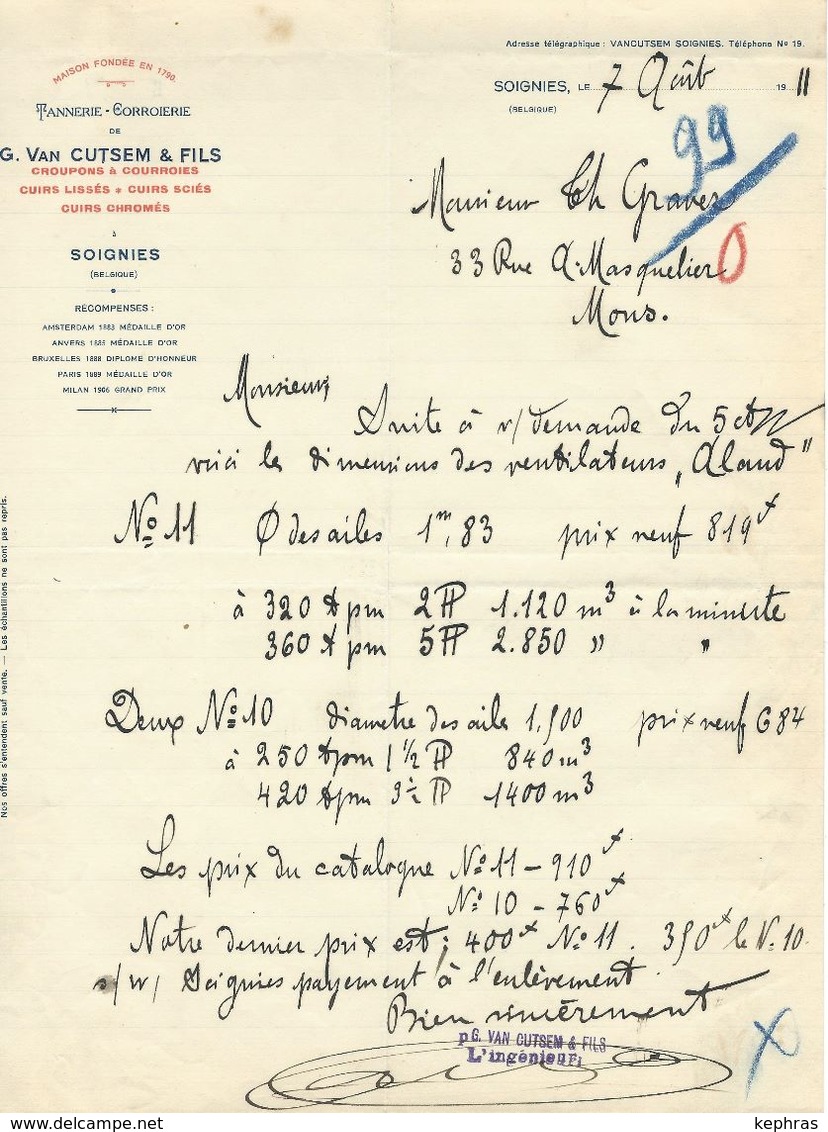 Adresse télégraphique : VANCUTSEM SOIGNIES. Téléphone No 19.
MAISON FONDÉE EN 1790.
TANNERIE - CORROIERIE
DE
G. VAN CUTSEM & FILS
CROUPONS à COURROIES
CUIRS LISSÉS * CUIRS SCIÉS
CUIRS CHROMÉS
à
SOIGNIES
(BELGIQUE)
RÉCOMPENSES :
AMSTERDAM 1883 MÉDAILLE D'OR
ANVERS 1885 MÉDAILLE D'OR
BRUXELLES 1888 DIPLOME D'HONNEUR
PARIS 1889 MÉDAILLE D'OR
MILAN 1906 GRAND PRIX
Nos offres s'entendent sauf vente. — Les échantillons ne sont pas repris.
SOIGNIES, LE 7 Août 1911
(BELGIQUE)
99
Monsieur Th Gravez
33 Rue A. Masquelier
Mons.
Monsieur,
Suite à v/ demande du 5 ct
voici les dimensions des ventilateurs „Aland"
No 11 Ø des ailes 1m,83 prix neuf 819
à 320 tpm 2 HP 1.120 m3 à la minute
360 tpm 5 HP 2.850 " "
Deux No 10 diametre des ailes 1,500 prix neuf 684
à 250 tpm 1 1/2 HP 840 m3
420 tpm 3 1/2 HP 1400 m3
Les prix du catalogue No 11 - 910
No 10 - 760
Notre dernier prix est : 400 No 11. 350 le No 10.
s/w/ Soignies payement à l'enlèvement
Bien sincèrement
p G. VAN CUTSEM & FILS
L'ingénieur
delcampe.net
kephras